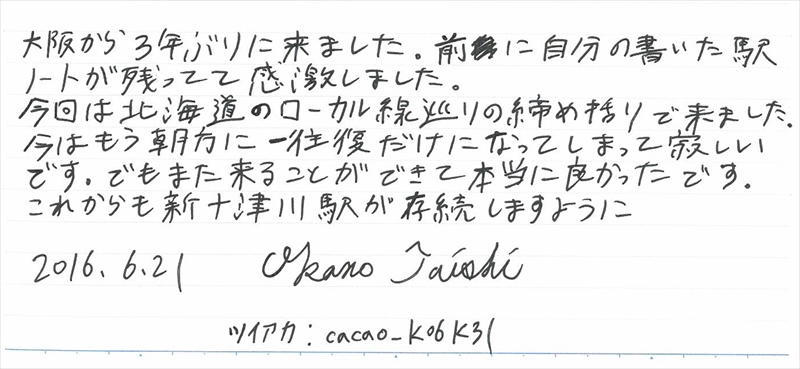 大阪から3年ぶりに来ました。前に自分の書いた駅
ノートが残ってて感激しました。
今回は北海道のローカル線巡りの締め括りで来ました。
今はもう朝方に一往復だけになってしまって寂しい
です。でもまた来ることができて本当に良かったです。
これからも新十津川駅が存続しますように
2016.6.21 Okano Taishi
ツイアカ:cacao_K06K31